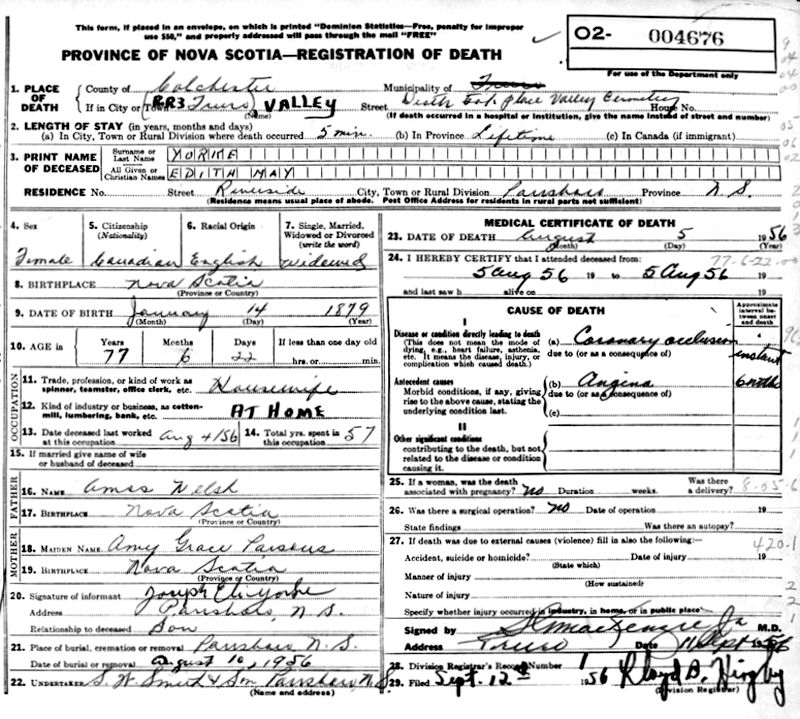 This form, if placed in an envelope, on which is printed "Dominion Statistics—Free, penalty for improper
use $50," and properly addressed will pass through the mail "FREE"
PROVINCE OF NOVA SCOTIA—REGISTRATION OF DEATH
O2- 004676
For use of the Department only
1. PLACE OF DEATH
County of Colchester Municipality of Truro
If in City or Town RR3 Truro VALLEY Street Death took place Valley Cemetery House No.
(Name) (If death occurred in a hospital or institution, give the name instead of street and number)
2. LENGTH OF STAY (in years, months and days)
(a) In City, Town or Rural Division where death occurred 5 min. (b) In Province Lifetime (c) In Canada (if immigrant)
3. PRINT NAME OF DECEASED
Surname or Last Name YORKE
All Given or Christian Names EDITH MAY
RESIDENCE No. Street Riverside City, Town or Rural Division Parrsboro Province N.S.
(Residence means usual place of abode. Post Office Address for residents in rural parts not sufficient)
4. Sex 5. Citizenship (Nationality) 6. Racial Origin 7. Single, Married, Widowed or Divorced (write the word)
Female Canadian English Widowed
8. BIRTHPLACE Nova Scotia
(Province or Country)
9. DATE OF BIRTH January 14 1879
(Month) (Day) (Year)
10. AGE in Years Months Days If less than one day old
77 6 22 hrs. or min.
OCCUPATION
11. Trade, profession, or kind of work as spinner, teamster, office clerk, etc. Housewife
12. Kind of industry or business, as cotton-mill, lumbering, bank, etc. AT HOME
13. Date deceased last worked at this occupation Aug 4/56 14. Total yrs. spent in this occupation 57
15. If married give name of wife or husband of deceased
FATHER
16. NAME Amos Welsh
17. BIRTHPLACE Nova Scotia
(Province or Country)
MOTHER
18. MAIDEN NAME Amy Grace Parsons
19. BIRTHPLACE Nova Scotia
(Province or Country)
20. Signature of informant Joseph Eli Yorke
Address Parrsboro, N.S.
Relationship to deceased Son
21. Place of burial, cremation or removal Parrsboro N.S.
Date of burial or removal August 10, 1956
22. UNDERTAKER S. W. Smith & Son Parrsboro N.S.
(Name and address)
MEDICAL CERTIFICATE OF DEATH
23. DATE OF DEATH August 5 1956
(Month) (Day) (Year)
24. I HEREBY CERTIFY that I attended deceased from: 77-6-22
5 Aug 56 19 to 5 Aug 56 19
and last saw h alive on 19
CAUSE OF DEATH
Approximate interval between onset and death
I
Disease or condition directly leading to death
(This does not mean the mode of dying, e.g., heart failure, asthenia, etc. It means the disease, injury, or complication which caused death.)
(a) Coronary occlusion instant
due to (or as a consequence of)
Antecedent causes
Morbid conditions, if any, giving rise to the above cause, stating the underlying condition last.
(b) Angina
due to (or as a consequence of)
(c)
II
Other significant conditions
contributing to the death, but not related to the disease or condition causing it.
25. If a woman, was the death associated with pregnancy? no Duration weeks. Was there a delivery?
26. Was there a surgical operation? no Date of operation 19
State findings Was there an autopsy?
27. If death was due to external causes (violence) fill in also the following: 420.1
Accident, suicide or homicide? Date of injury 19
(State which)
Manner of injury
(How sustained)
Nature of injury
Specify whether injury occurred in industry, in home, or in public place
Signed by M.D.
Address Truro Date 11 Sept 1956
28. Division Registrar's Record Number 1
29. Filed Sept. 12th 1956
(Division Registrar)